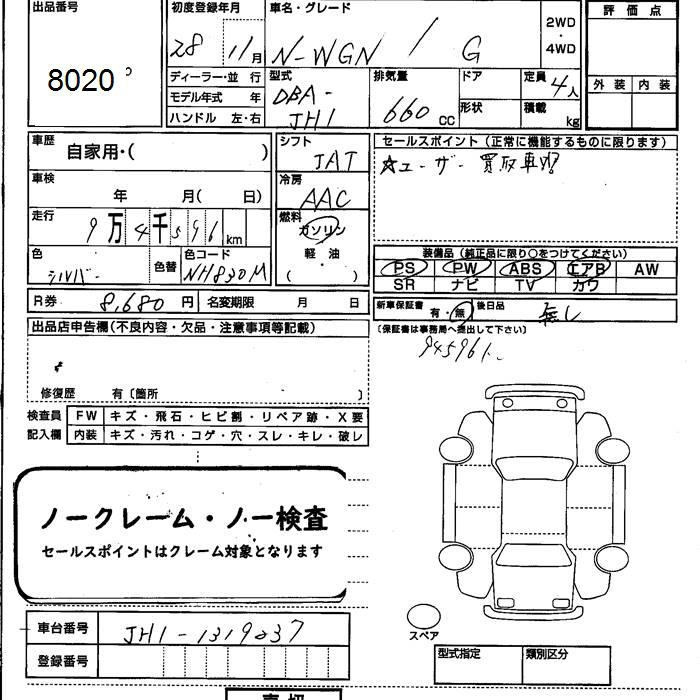 出品番号
8020
初度登録年月
28 11月
車名・グレード
N-WGN / G
2WD
・
4WD
評価点
外装 内装
ディーラー・並 行
モデル年式 年
ハンドル 左・右
型式
DBA-
JH1
排気量
660 cc
ドア
形状
定員 4人
積載 kg
車歴
自家用・( )
車検
年 月( 日)
走行
9万4千596 km
色
シルバー
色替
色コード
NH830M
シフト
JAT
冷房
AAC
燃料
ガソリン
・
軽 油
( )
セールスポイント (正常に機能するものに限ります)
☆ユーザー買取車!!
装備品 (純正品に限り〇をつけてください)
PS PW ABS エアB AW
SR ナビ TV カワ
R券 8,680 円
名変期限 月 日
新車保証書
有・無
後日品
無し
(保証書は事務局へ提出して下さい)
出品店申告欄(不良内容・欠品・注意事項等記載)
修復歴 有〔箇所 〕
検査員
記入欄
FW キズ・飛石・ヒビ割・リペア跡・X要
内装 キズ・汚れ・コゲ・穴・スレ・キレ・破レ
ノークレーム・ノー検査
セールスポイントはクレーム対象となります
車台番号 JH1-1319037
登録番号
スペア
型式指定 類別区分